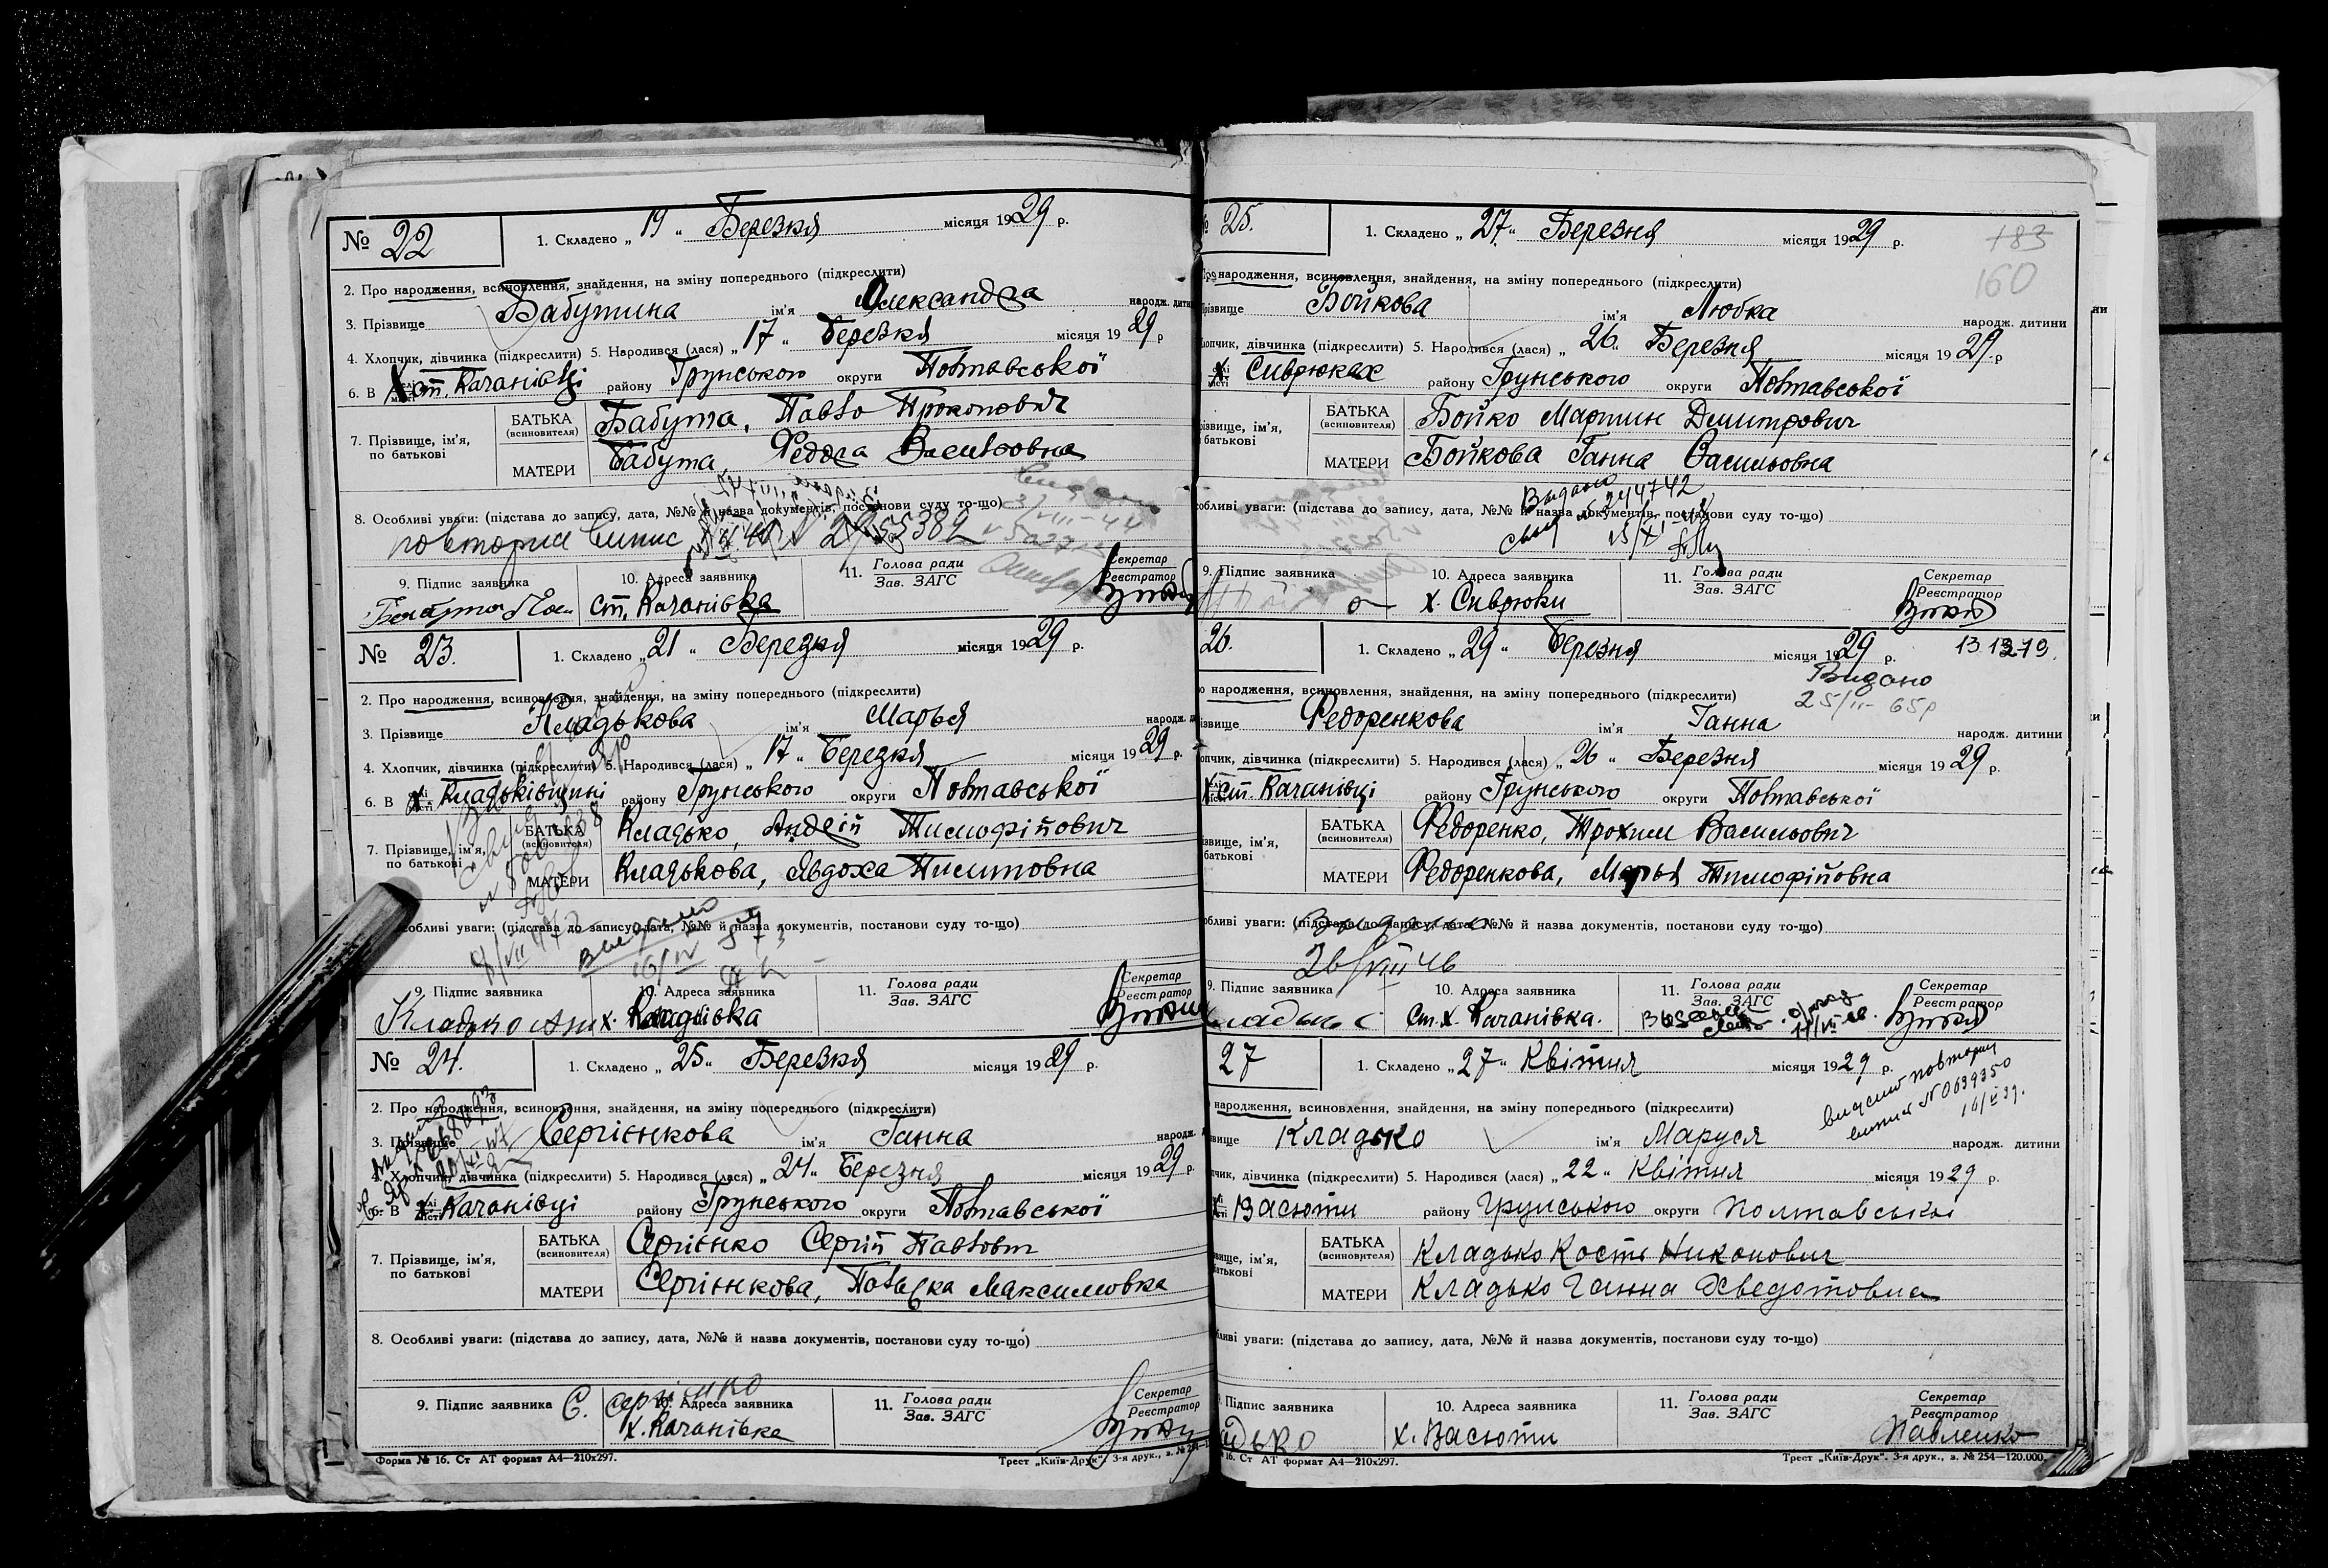 № 22
1. Складено „ 19 “ Березня місяця 1929 р.
2. Про народження, всиновлення, знайдення, на зміну попереднього (підкреслити)
3. Прізвище Бабутина ім'я Олександра народж. дити
4. Хлопчик, дівчинка (підкреслити) 5. Народився (лася) „ 17 “ Березня місяця 1929 р
6. В ст. Качанівці району Грунського округи Полтавської
7. Прізвище, ім'я, по батькові
БАТЬКА (всиновителя) Бабута, Павло Прокопович
МАТЕРИ Бабута, Федора Васильовна
8. Особливі уваги: (підстава до запису, дата, №№ й назва документів, постанови суду то-що)
9. Підпис заявника
10. Адреса заявника
ст. Качанівка
11. Голова ради
Зав. ЗАГС
Секретар
Реєстратор
№ 23.
1. Складено „ 21 “ Березня місяця 1929 р.
2. Про народження, всиновлення, знайдення, на зміну попереднього (підкреслити)
3. Прізвище Кладькова ім'я Марья народж. д
4. Хлопчик, дівчинка (підкреслити) 5. Народився (лася) „ 17 “ Березня місяця 1929 р.
6. В х. Кладьківщині району Грунського округи Полтавської
7. Прізвище, ім'я, по батькові
БАТЬКА (всиновителя) Кладько, Андрій Тимофійович
МАТЕРИ Кладькова, Явдоха Пилиповна
собливі уваги: (підстава до запису, дата, №№ й назва документів, постанови суду то-що)
9. Підпис заявника
10. Адреса заявника
11. Голова ради
Зав. ЗАГС
Секретар
Реєстратор
№ 24.
1. Складено „ 25 “ Березня місяця 1929 р.
2. Про народження, всиновлення, знайдення, на зміну попереднього (підкреслити)
3. Прізвище Сергієнкова ім'я Ганна народж.
4. Хлопчик, дівчинка (підкреслити) 5. Народився (лася) „ 24 “ Березня місяця 1929 р.
6. В х. Качанівці району Грунського округи Полтавської
7. Прізвище, ім'я, по батькові
БАТЬКА (всиновителя) Сергієнко Сергій Павлович
МАТЕРИ Сергієнкова, Палажка Максимовна
8. Особливі уваги: (підстава до запису, дата, №№ й назва документів, постанови суду то-що)
9. Підпис заявника С. Сергієнко
10. Адреса заявника
х. Качанівка
11. Голова ради
Зав. ЗАГС
Секретар
Реєстратор
Форма № 16. Ст АТ формат А4—210х297.
Трест „Київ-Друк“. 3-я друк., з. № 254
25.
1. Складено „ 27 “ Березня місяця 1929 р.
183
160
народження, всиновлення, знайдення, на зміну попереднього (підкреслити)
різвище Бойкова ім'я Любка народж. дитини
лопчик, дівчинка (підкреслити) 5. Народився (лася) „ 26 “ Березня місяця 1929 р
х. Сиврюках району Грунського округи Полтавської
БАТЬКА (всиновителя) Бойко Мартин Дмитрович
МАТЕРИ Бойкова Ганна Васильовна
Выдано
собливі уваги: (підстава до запису, дата, №№ й назва документів, постанови суду то-що)
9. Підпис заявника
10. Адреса заявника
х. Сиврюки
11. Голова ради
Зав. ЗАГС
Секретар
Реєстратор
26.
1. Складено „ 29 “ Березня місяця 1929 р.
Видано
25/II-65р
народження, всиновлення, знайдення, на зміну попереднього (підкреслити)
ізвище Федоренкова ім'я Ганна народж. дитини
опчик, дівчинка (підкреслити) 5. Народився (лася) „ 26 “ Березня місяця 1929 р.
ст. Качанівці району Грунського округи Полтавської
БАТЬКА (всиновителя) Федоренко, Трохим Васильович
МАТЕРИ Федоренкова, Марья Тимофійовна
обливі уваги: (підстава до запису, дата, №№ й назва документів, постанови суду то-що)
26/VIII 46
9. Підпис заявника
10. Адреса заявника
ст. х. Качанівка.
11. Голова ради
Зав. ЗАГС
Секретар
Реєстратор
27
1. Складено „ 27 “ Квітня місяця 1929 р.
народження, всиновлення, знайдення, на зміну попереднього (підкреслити)
№ 0639350
вище Кладько ім'я Маруся народж. дитини
пчик, дівчинка (підкреслити) 5. Народився (лася) „ 22 “ Квітня місяця 1929 р.
х Васюти району Грунського округи Полтавської
БАТЬКА (всиновителя) Кладько Кость Никонович
МАТЕРИ Кладько Ганна Хведотовна
бливі уваги: (підстава до запису, дата, №№ й назва документів, постанови суду то-що)
Підпис заявника
10. Адреса заявника
х. Васюти
11. Голова ради
Зав. ЗАГС
Секретар
Реєстратор
Павленко
16. Ст АТ формат А4—210х297.
Трест „Київ-Друк“. 3-я друк., з. № 254—120.000.